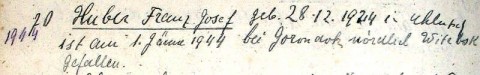 20 Huber Franz Josef geb. 28.12.1924 in
1944 ist am 1. Jänner 1944 bei nördlich Witebsk
gefallen.